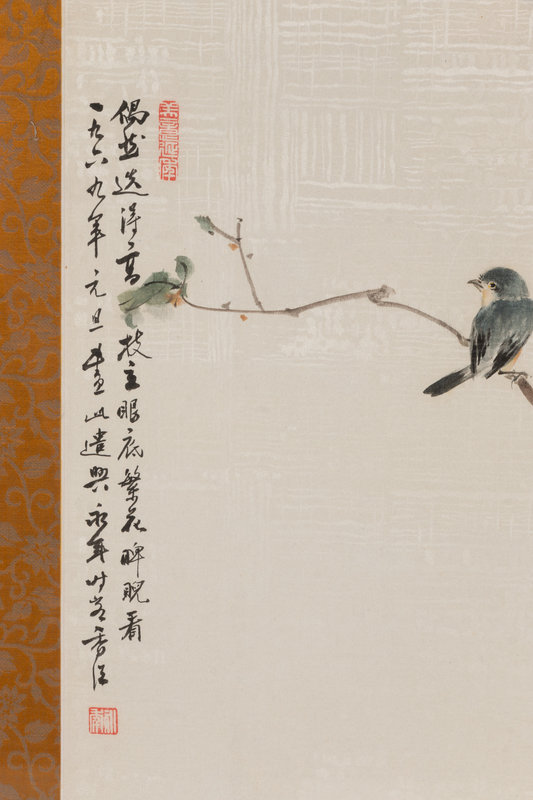 偶然选得高枝立眼底繁花睥睨看
一九六九年元旦画此遣兴永年时客香江